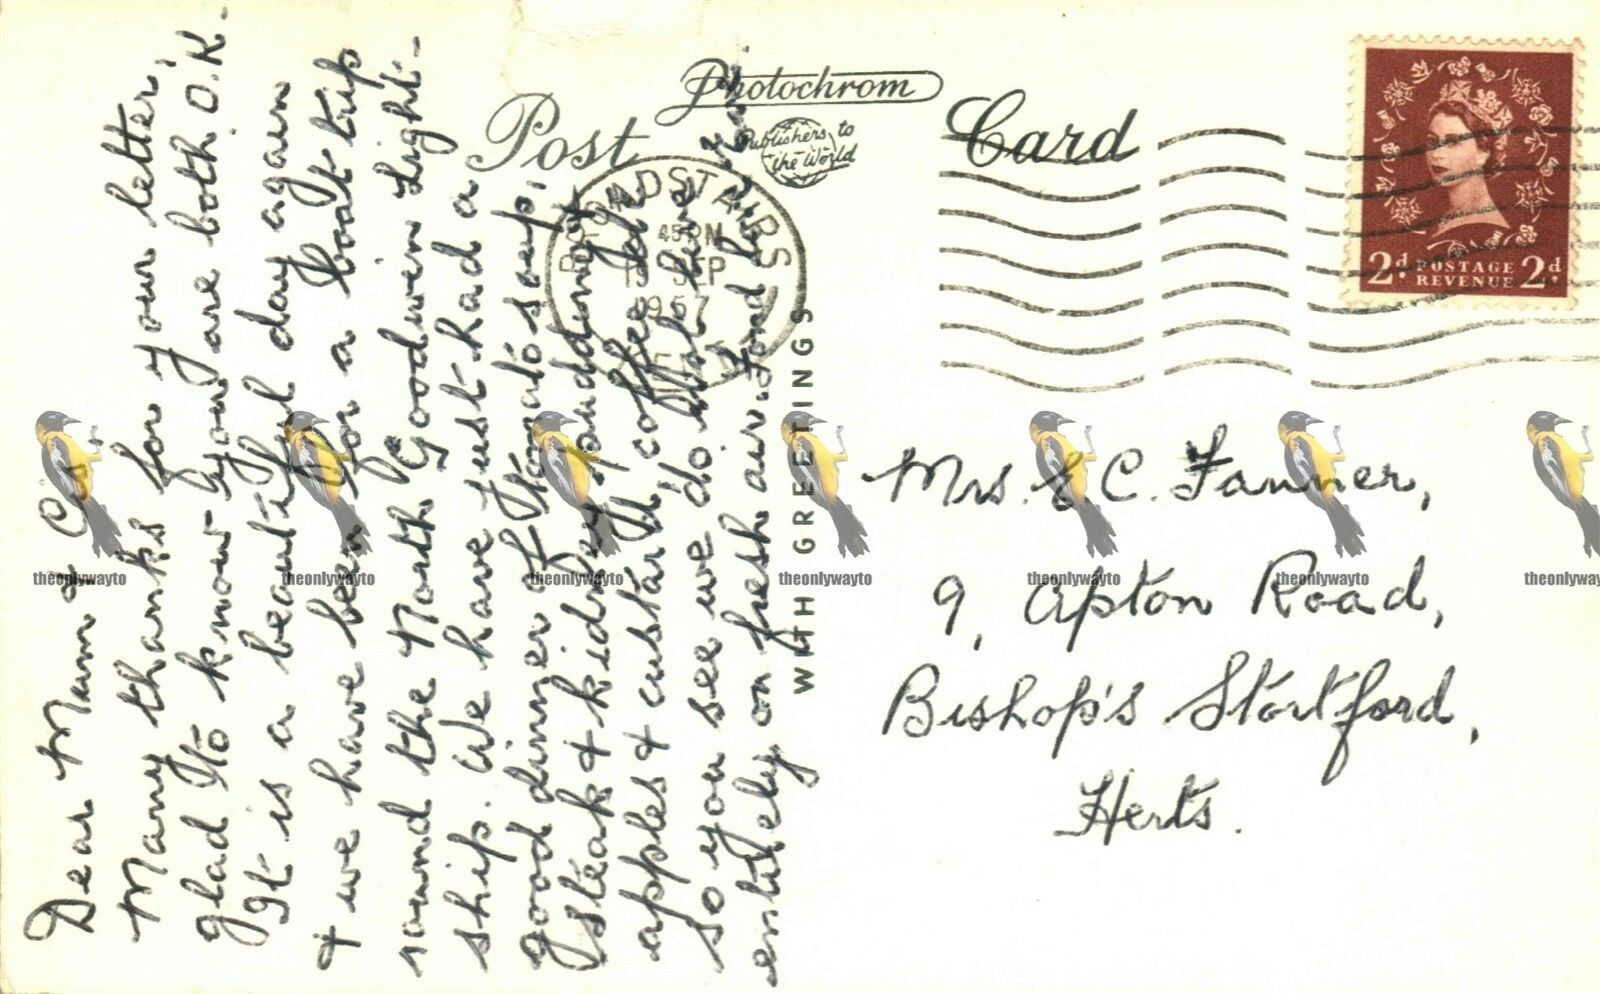 Dear Mum & Cis
Many thanks for your letter,
glad to know you are both O.K.
It is a beautiful day again
& we have been for a boat trip
round the North Goodwin Light-
ship. We have just had a
good dinner of tomato soup,
steak & kidney pudding &
apples & custard coffee
so you see we do not live
entirely on fresh air. Fond love
Post Card
Photochrom
Publishers to
the World
BROADSTAIRS
45 PM
SEP
1957
KENT
WITH GREETINGS
2d POSTAGE 2d
REVENUE
Mrs. E. C. Fanner,
9, Apton Road,
Bishop's Stortford,
Herts.
theonlywayto theonlywayto theonlywayto theonlywayto theonlywayto theonlywayto theonlywayto